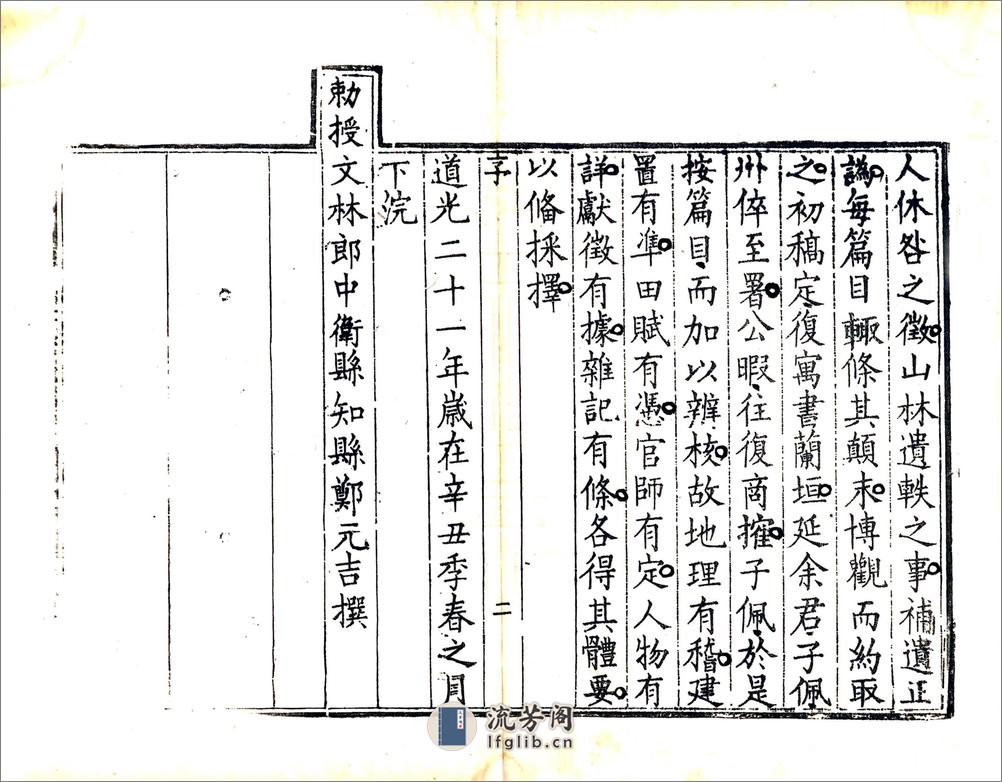 人休咎之徵山林遺軼之事補遺正
譌每篇目輙條其顛末博觀而約取
之初稿定復寓書蘭垣延余君子佩
州倅至署公暇往復商搉子佩於是
按篇目而加以辨核故地理有稽建
置有準田賦有憑官師有定人物有
詳獻徵有據雜記有條各得其體要
以俻採擇
序
二
道光二十一年歲在辛丑季春之月
下浣
勅授文林郎中衛縣知縣鄭元吉撰
流芳阁
lfglib.cn